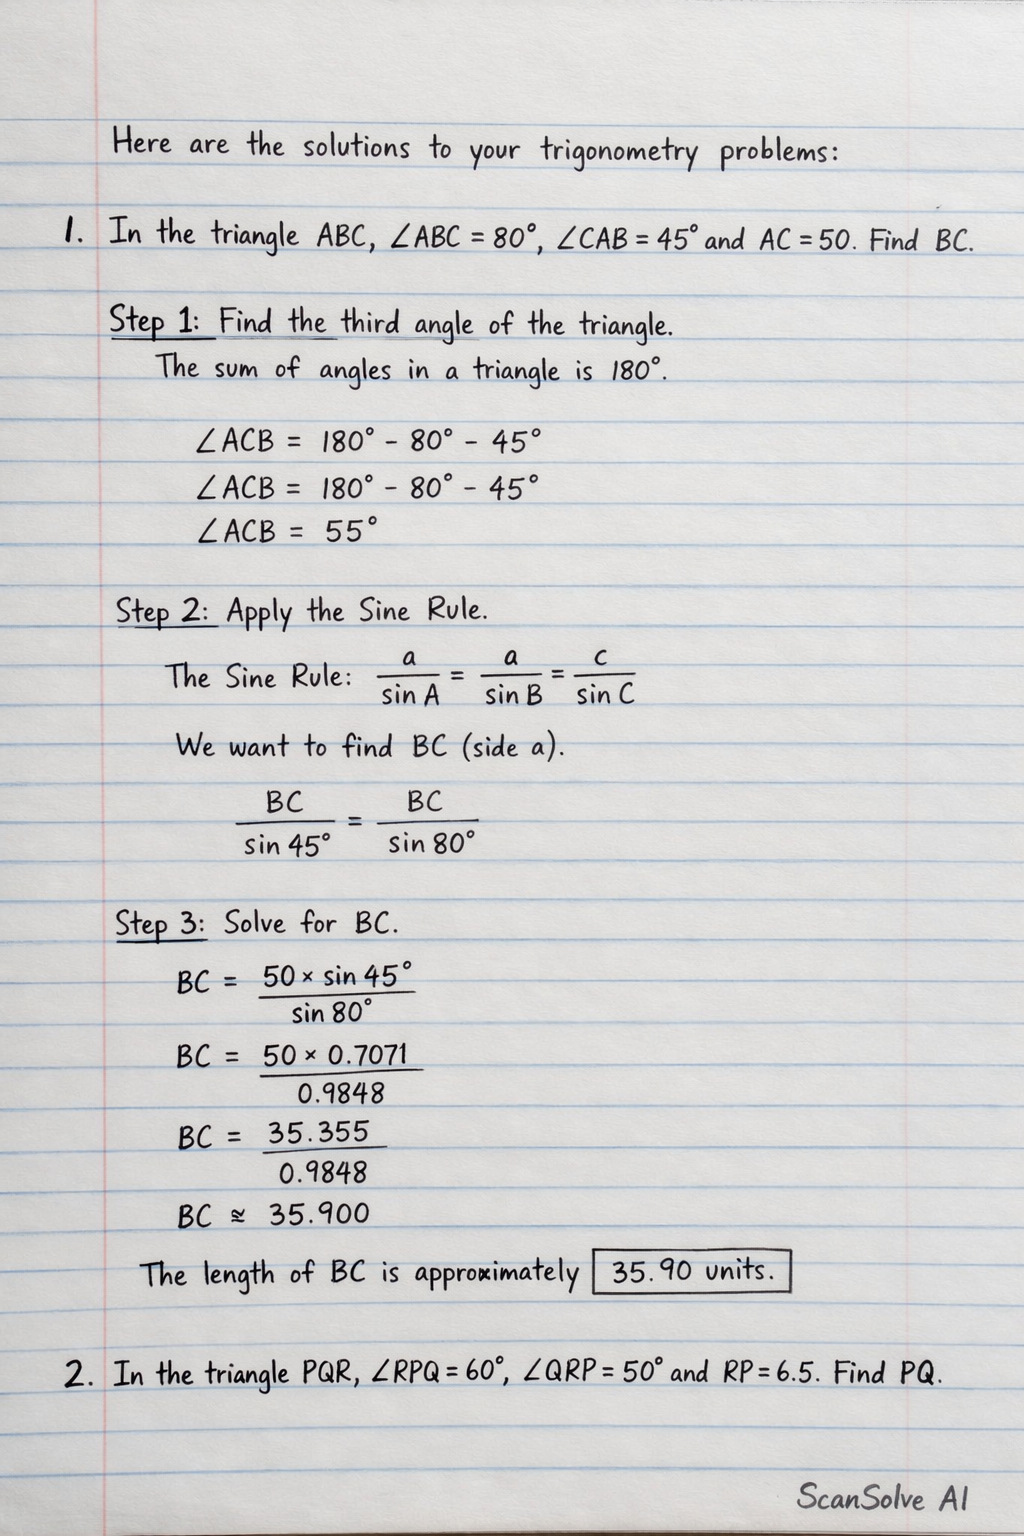 Here are the solutions to your trigonometry problems:
1. In the triangle ABC, ∠ABC = 80°, ∠CAB = 45° and AC = 50. Find BC.
Step 1: Find the third angle of the triangle.
The sum of angles in a triangle is 180°.
∠ACB = 180° - 80° - 45°
∠ACB = 180° - 80° - 45°
∠ACB = 55°
Step 2: Apply the Sine Rule.
The Sine Rule: a/sin A = a/sin B = c/sin C
We want to find BC (side a).
BC/sin 45° = BC/sin 80°
Step 3: Solve for BC.
BC = 50 × sin 45°/sin 80°
BC = 50 × 0.7071/0.9848
BC = 35.355/0.9848
BC ≈ 35.900
The length of BC is approximately 35.90 units.
2. In the triangle PQR, ∠RPQ = 60°, ∠QRP = 50° and RP = 6.5. Find PQ.
ScanSolve AI